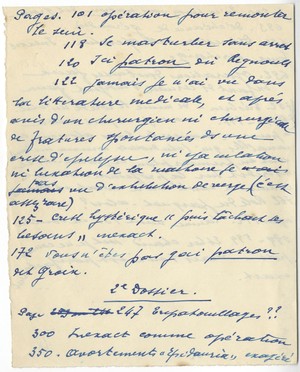 Pages. 101 opération pour remonter
le sein.
118 Se masturber sans arret
120 Ici patron dis Regnault
122 jamais je n'ai vu dans
la literature medicale, et après
avis d'un chirurgien ni chirurgicale
de fratures spontanées ds une
crise d'epilepsie, ni
ni luxation de la machoire je n'ai
pas vu d'exhibition de verge (c'est
assez rare)
125 — crise hystérique "puis lâchait les
besoins" inexact.
172 vous n'êtes pas patron
de Groix.
2e Dossier.
Page 247 Tripatouillages ??
300 Inexact comme opération
350. Avortements "Epidauria" exagéré